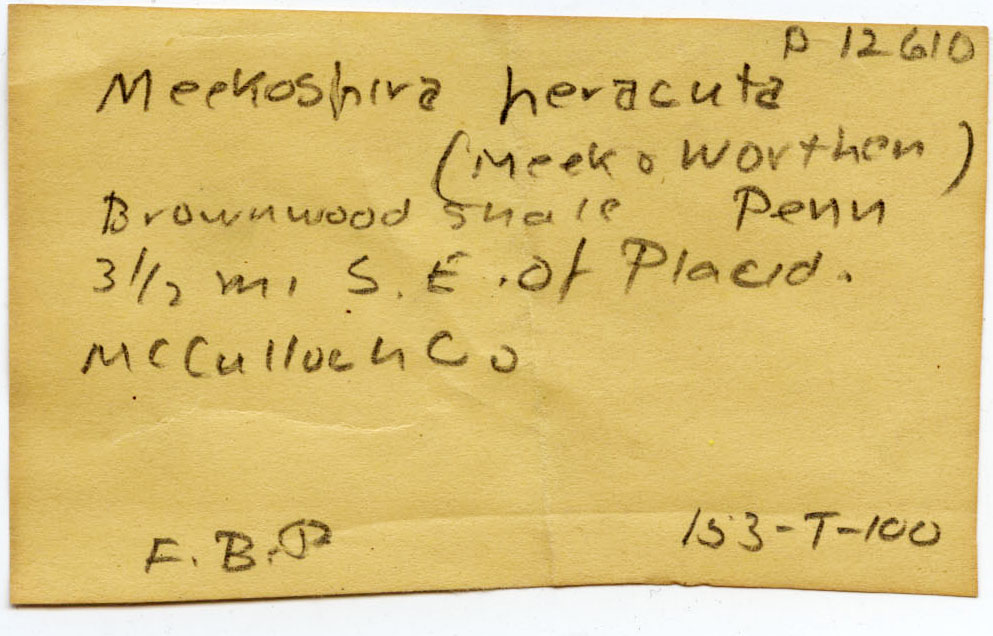 P 12610
Meekospira peracuta
(Meek & Worthen)
Brownwood shale Penn
3 1/2 mi S.E. of Placid.
McCulloch Co
F.B.P
153-T-100